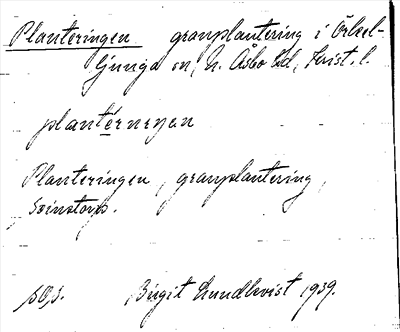 Planteringen granplantering i Örkel-
ljunga sn, N. Åsbo hd, Krist. l.
plantérnengen
Planteringen, granplantering,
Svinstorp.
Birgit Lundkvist 1939.